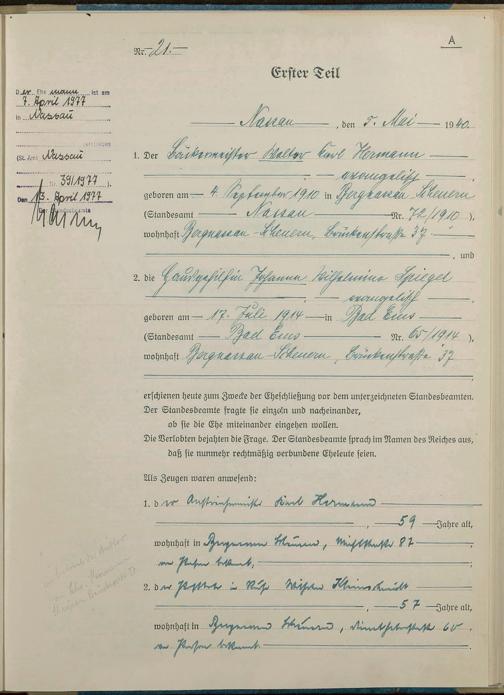 A
Nr. 21.
Erster Teil
Der Ehemann ist am
7. April 1977
in Nassau
(St. Amt Nassau
Nr. 39/1977).
Den 13. April 1977
Nassau, den 5. Mai 1940.
1. Der Bäckermeister Walter Karl Hermann
evangelisch
geboren am 4. September 1910 in Bergnassau-Scheuern
(Standesamt Nassau Nr. 72/1910),
wohnhaft Bergnassau-Scheuern, Brückenstraße 37
, und
2. die Hausgehilfin Johanna Wilhelmine Spiegel
evangelisch
geboren am 17. Juli 1914 in Bad Ems
(Standesamt Bad Ems Nr. 65/1914),
wohnhaft Bergnassau-Scheuern, Brückenstraße 37
erschienen heute zum Zwecke der Eheschließung vor dem unterzeichneten Standesbeamten.
Der Standesbeamte fragte sie einzeln und nacheinander,
ob sie die Ehe miteinander eingehen wollen.
Die Verlobten bejahten die Frage. Der Standesbeamte sprach im Namen des Reiches aus,
daß sie nunmehr rechtmäßig verbundene Eheleute seien.
Als Zeugen waren anwesend:
1. der Karl Hermann
, 59 Jahre alt,
wohnhaft in Bergnassau Scheuern, 87
der Person bekannt,
2. der Wilhelm
, 57 Jahre alt,
wohnhaft in Bergnassau Scheuern, 60
der Person bekannt.